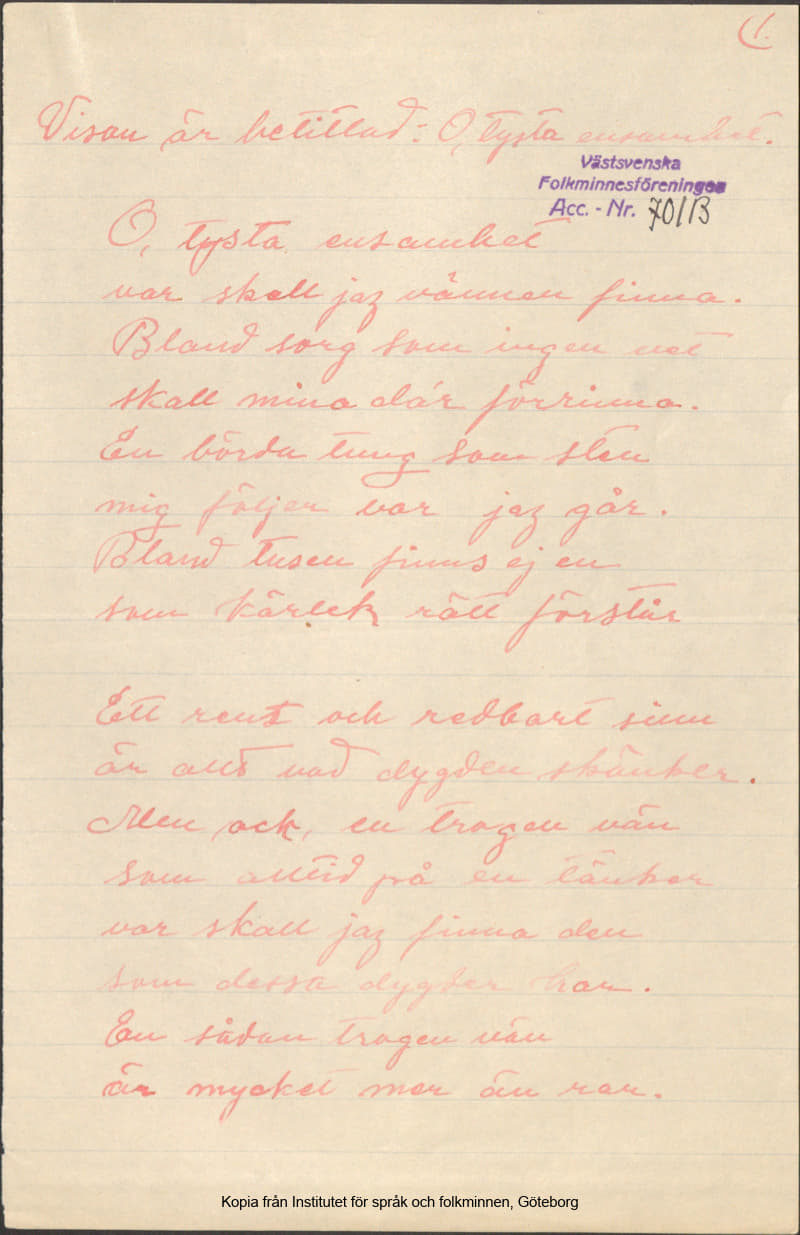 1.
Visan är betittlad: O, tysta ensamhet.
Västsvenska
Folkminnesföreningen
Acc. - Nr. 70113
O, tysta ensamhet
var skall jag vännen finna.
Bland sorg som ingen vet
skall mina dar förrinna.
En börda tung som sten
mig följer var jag går.
Bland tusen finns ej en
som kärlek rätt förstår
Ett rent och redbart sinn
är allt vad dygden skänker.
Men ack, en trogen vän
som alltid på en tänker
var skall jag finna den
som dessa dygder har.
En sådan trogen vän
är mycket mer än rar.
Kopia från Institutet för språk och folkminnen, Göteborg